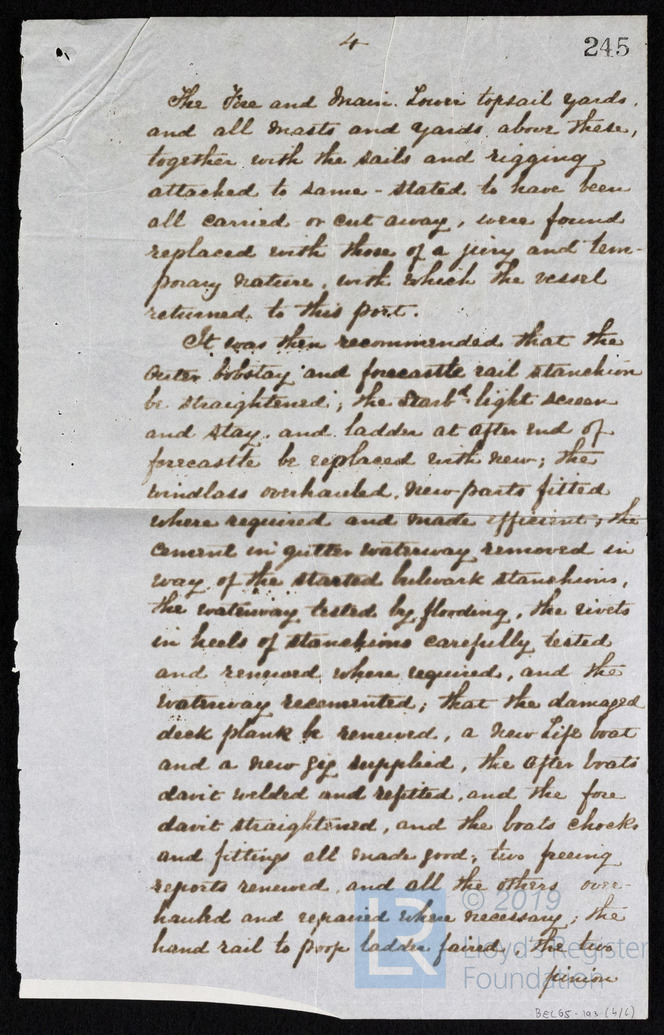 4
245
The Fore and Main Lower topsail yards,
and all Masts and yards above these,
together with the sails and rigging
attached to same - stated to have been
all carried or cut away, were found
replaced with those of a jury and tem-
porary nature, with which the vessel
returned to this port.
It was then recommended that the
Outer bobstay and forecastle rail stanchion
be straightened; the Starbd light screen
and stay, and ladder at after end of
forecastle be replaced with new; the
windlass overhauled, new parts fitted
where required and made efficient; the
cement in gutter waterway removed in
way of the started bulwark stanchions,
the waterway tested by flooding, the rivets
in heels of stanchions carefully tested
and renewed where required, and the
waterway recemented; that the damaged
deck plank be renewed, a new Life boat
and a new gig supplied, the after boats
davit welded and refitted, and the fore
davit straightened, and the boats chocks
and fittings all made good; two freeing
ports renewed and all the others over-
hauled and repaired where necessary; the
hand rail to poop ladder faired, the two
pinion
© 2019
Lloyd's Register
Foundation
LR
BEL65-193 (4/6)